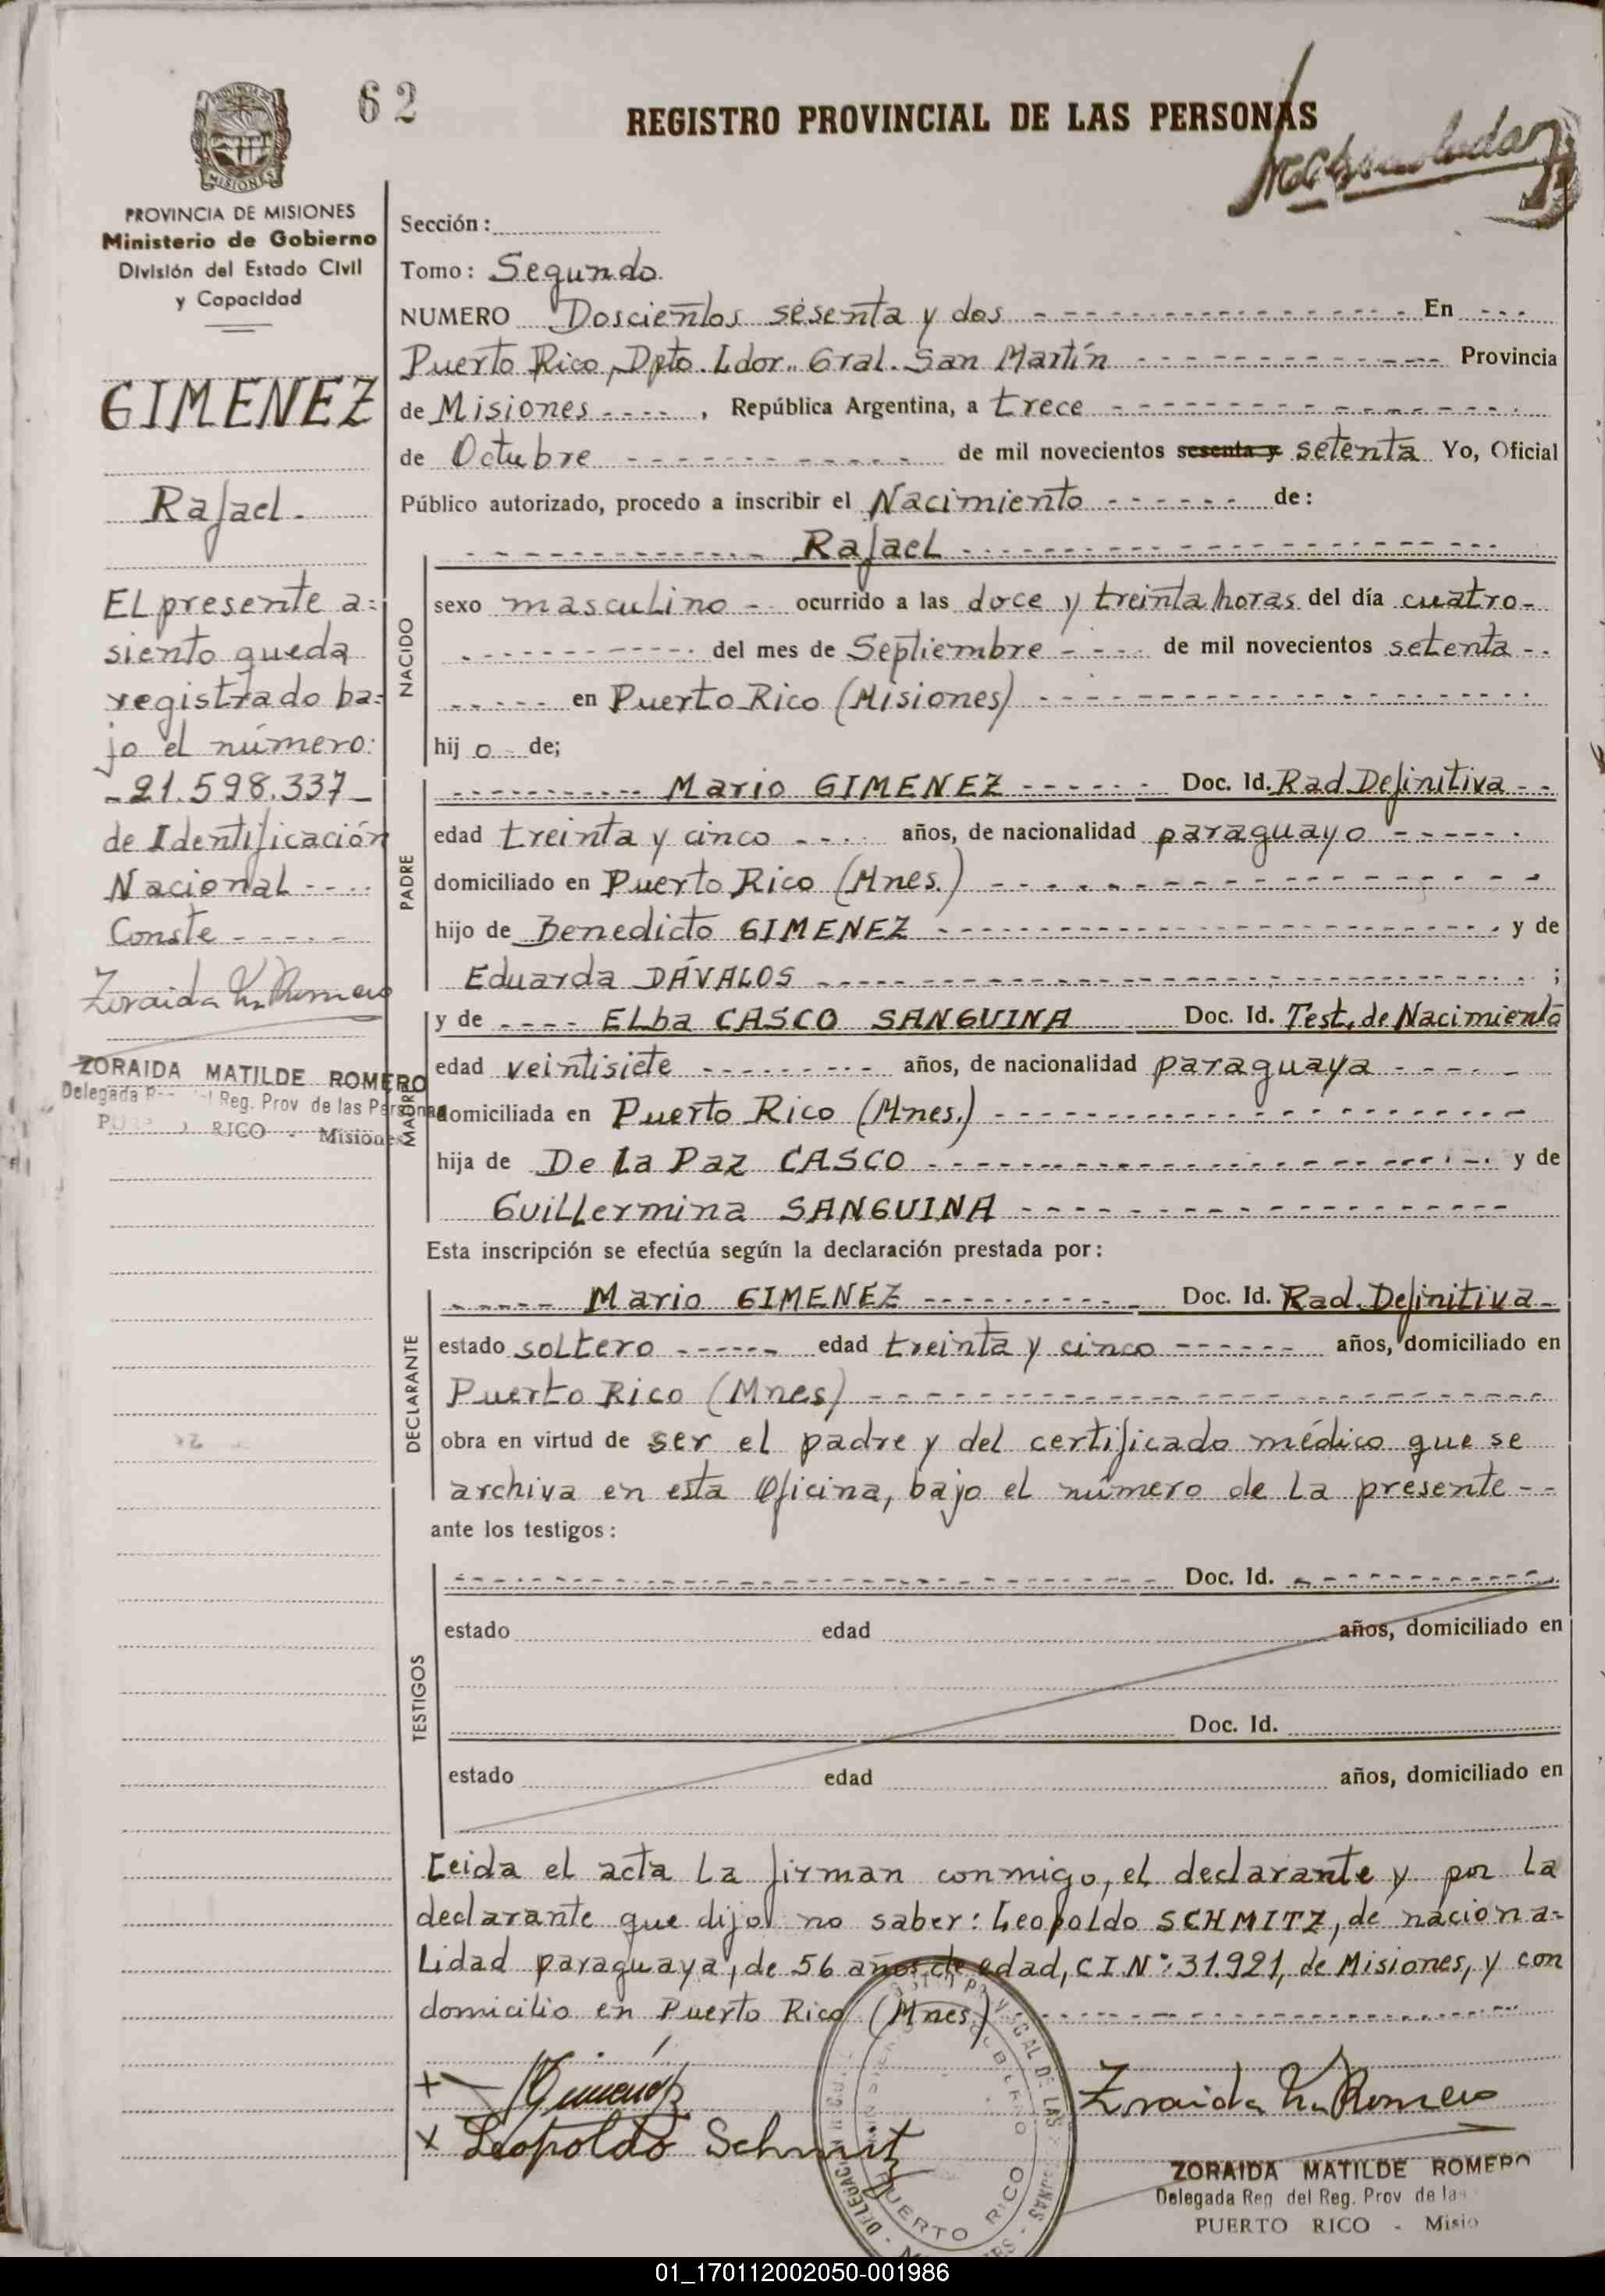 62
REGISTRO PROVINCIAL DE LAS PERSONAS
MISIONES
PROVINCIA DE MISIONES
Ministerio de Gobierno
División del Estado Civil
y Capacidad
GIMENEZ
Rafael.
El presente a=
siento queda
registrado ba=
jo el número:
-21.598.337-
de Identificación
Nacional - - - -
Conste - - - - -
Zoraida M. Romero
ZORAIDA MATILDE ROMERO
Delegada Reg. Prov de las Personas
RICO - Misiones
Sección:
Tomo: Segundo.
NUMERO Doscientos sesenta y dos - - - - En - - -
Puerto Rico, Dpto. Ldor. Gral. San Martín - - - - Provincia
de Misiones - - - -, República Argentina, a trece - - - -
de Octubre - - - - de mil novecientos sesenta y setenta Yo, Oficial
Público autorizado, procedo a inscribir el Nacimiento - - - - de:
NACIDO
- - - - Rafael - - - -
sexo masculino - - ocurrido a las doce y treinta horas del día cuatro -
- - - - del mes de Septiembre - - - - de mil novecientos setenta - -
- - - - en Puerto Rico (Misiones) - - - -
hij o - de;
PADRE
- - - - Mario GIMENEZ - - - - Doc. Id. Rad. Definitiva - -
edad treinta y cinco - - - - años, de nacionalidad paraguayo - - - -
domiciliado en Puerto Rico (Mnes.) - - - -
hijo de Benedicto GIMENEZ - - - - y de
Eduarda DÁVALOS - - - - ;
MADRE
y de - - - - Elba CASCO SANGUINA Doc. Id. Test. de Nacimiento
edad veintisiete - - - - años, de nacionalidad paraguaya - - - -
domiciliada en Puerto Rico (Mnes.) - - - -
hija de De la Paz CASCO - - - - y de
Guillermina SANGUINA - - - -
Esta inscripción se efectúa según la declaración prestada por:
DECLARANTE
- - - - Mario GIMENEZ - - - - Doc. Id. Rad. Definitiva -
estado soltero - - - - edad treinta y cinco - - - - años, domiciliado en
Puerto Rico (Mnes) - - - -
obra en virtud de ser el padre y del certificado médico que se
archiva en esta Oficina, bajo el número de la presente - -
ante los testigos:
TESTIGOS
- - - - Doc. Id. - - - -
estado edad años, domiciliado en
Doc. Id.
estado edad años, domiciliado en
Leida el acta la firman conmigo, el declarante y por la
declarante que dijo no saber: Leopoldo SCHMITZ, de naciona=
lidad paraguaya, de 56 años de edad, C.I.N°: 31.921, de Misiones, y con
domicilio en Puerto Rico (Mnes) - - - -
+ Gimenez
x Leopoldo Schmitz
Zoraida M. Romero
PUERTO RICO
ZORAIDA MATILDE ROMERO
Delegada Reg del Reg. Prov de las
PUERTO RICO - Misio
01_170112002050-001986